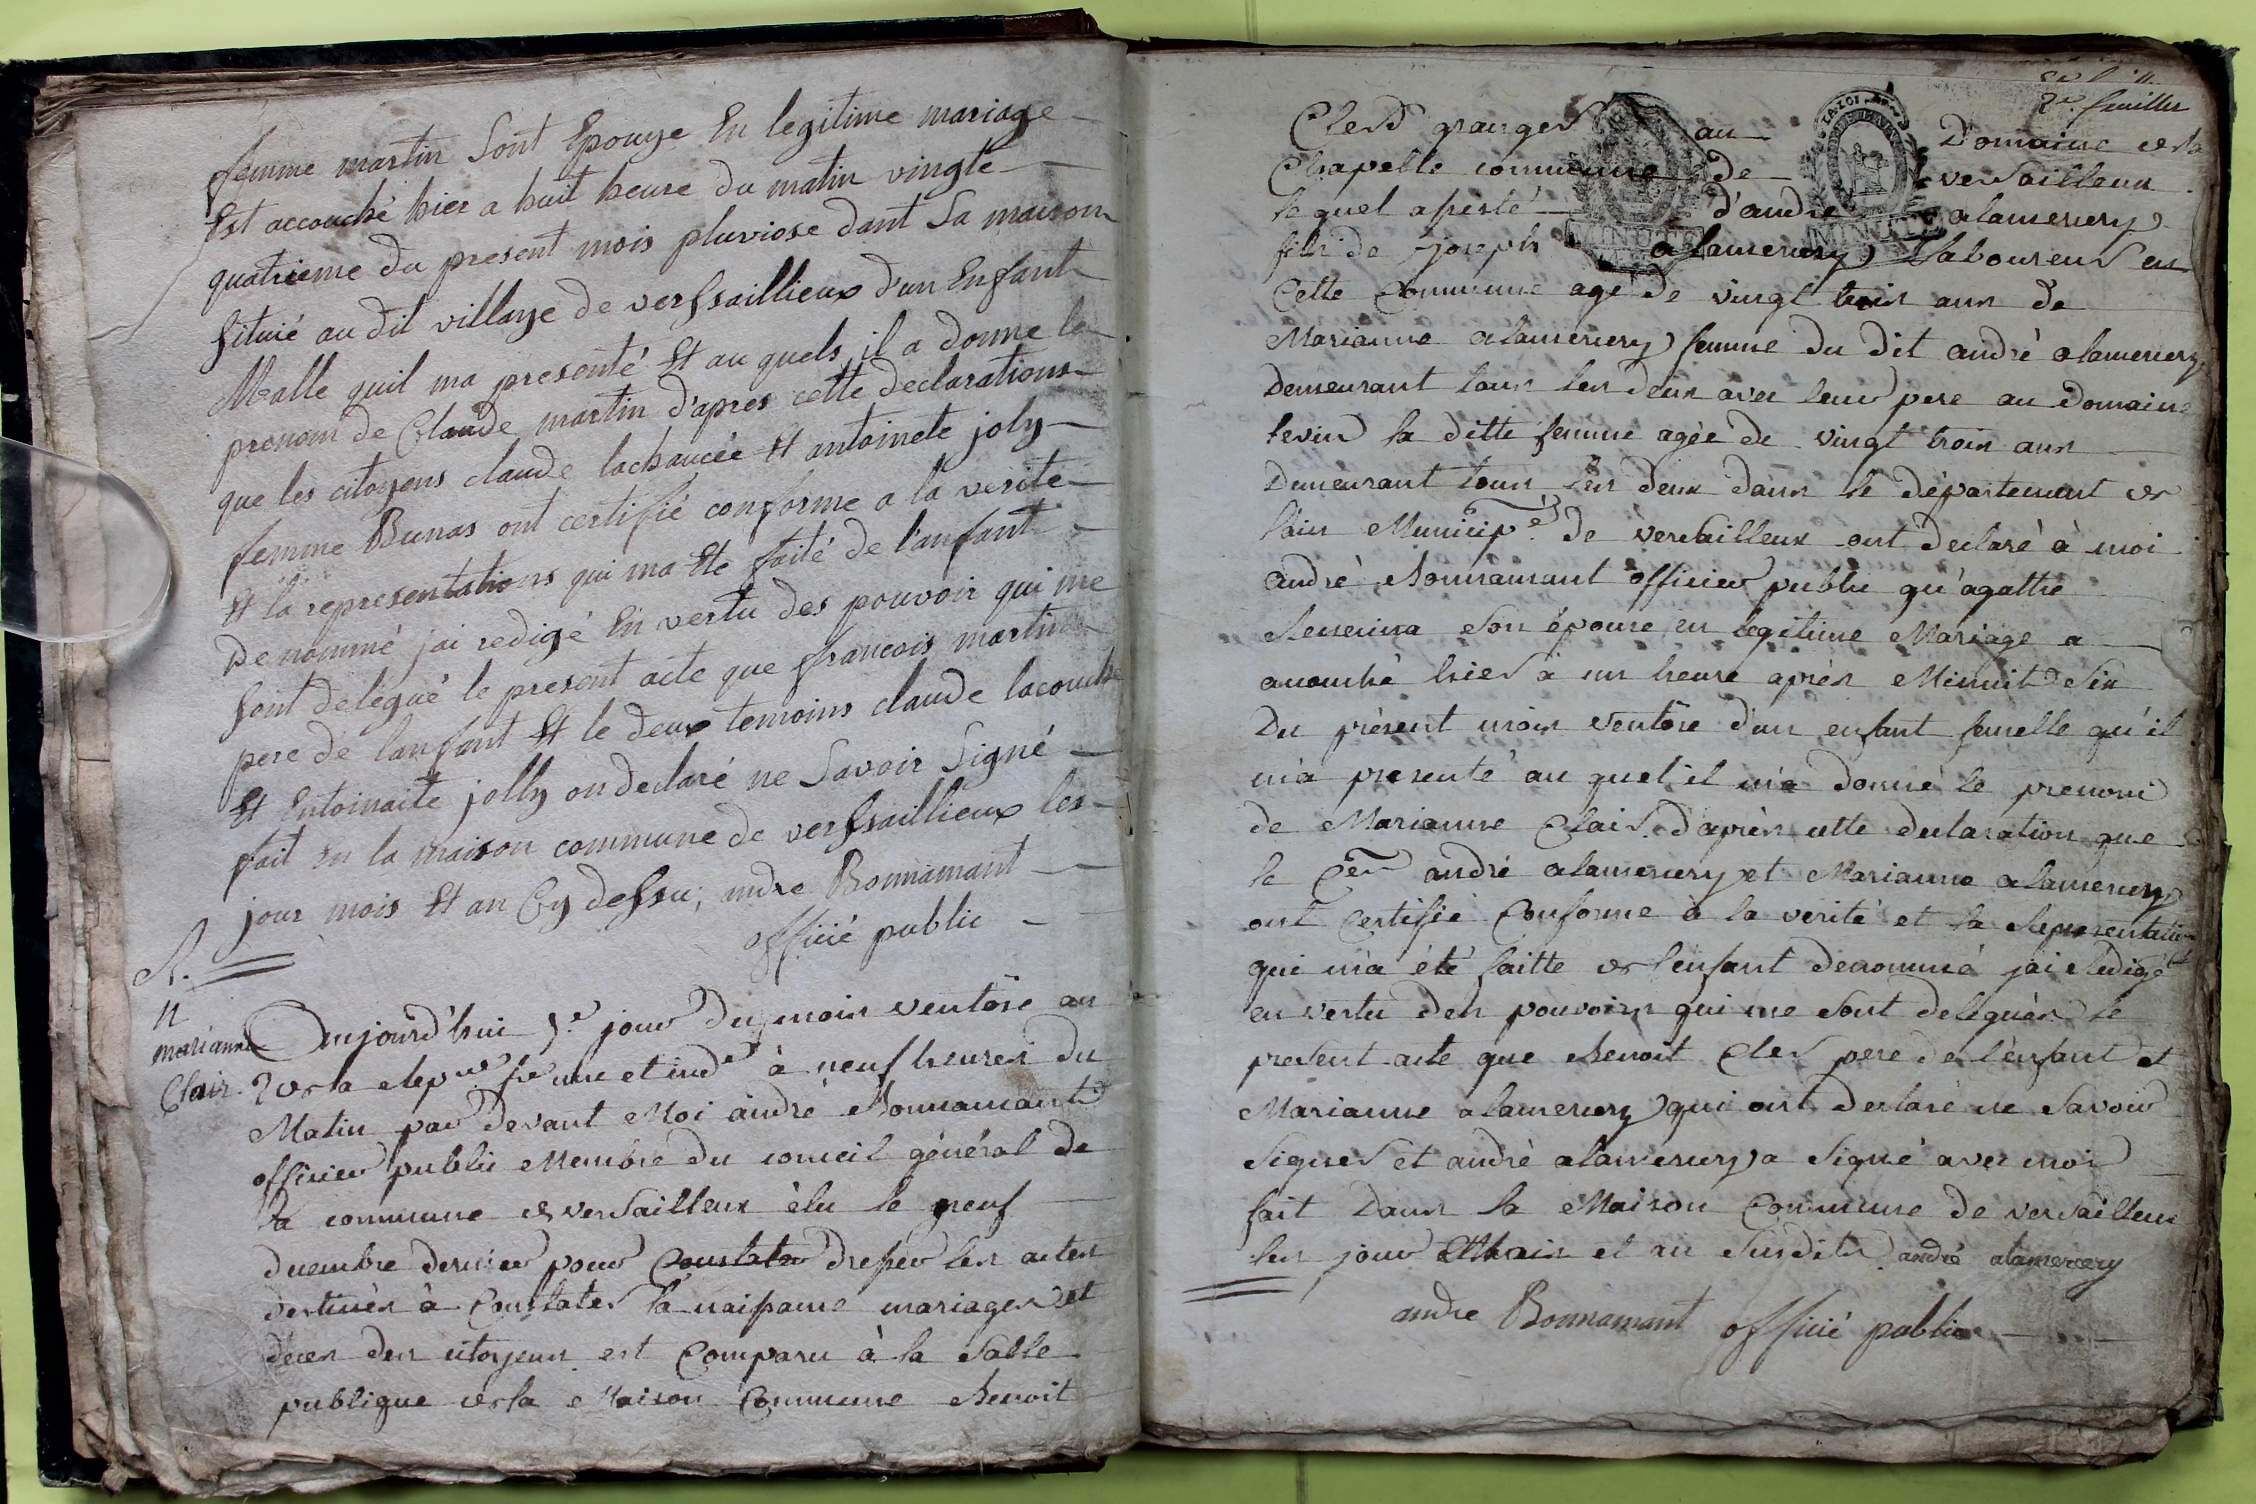 femme martin Sont Epouse En legitime mariage
Est accouché hier a huit heure du matin vingte
quatrieme du present mois pluviose dant Sa maison
Situié au dit village de verssaillieux d'un Enfant
Malle quil ma presenté Et au quels il a donne le
prenom de Claude martin d'apres cette declarations
que les citoyens claude lachaucée Et antoinete joly
femme Bunas ont certifié conforme a la verite
Et la representations qui ma Ete faité de l'anfant
De nommé jai redigé En vertu des pouvoir qui me
Sont delegué le present acte que francois martin
pere de lanfant Et le deux temoins claude lacouche
Et Entoinaite jolly on declaré ne Savoir Signé
fait en la maison commune de verssaillieux les
jour mois Et an Cy dessu; andre Bonnamant
officié public
N.
11
marianne
Clair.
Aujourd'hui 7.e jour du mois ventôse an
2 de la repque fse une et indle à neuf heures du
Matin par devant Moi andré Bonnamant
officier public Membre du conseil général de
la commune de versailleux élu le neuf
decembre dernier pour Constater dresser les actes
destinés à Constater la naissance mariages et
déces des citoyens est Comparu à la Salle
publique de la Maison Commune Benoit
2e feuillet
Cler granger au Domaine de la
Chapelle commune de versailleux
lequel assisté d'andré alamercery
fils de joseph alamercery Laboureur en
Cette Commune agé de vingt trois ans de
Marianne alamercery femme du dit andré alamercery
Demeurant tous les deux avec leur pere au domaine
levin la ditte femme agée de vingt trois ans
Demeurant tous les deux dans le département de
lain Municip.é de versailleux ont declaré à moi
andré Bonnamant officier public qu'agathe
Son épouse en legitime Mariage a
acouché hier à un heure après Minuit Six
Du présent mois Ventôse d'un enfant femelle qu'il
m'a presenté au quel il m'a donné le prenom
de Marianne Clair. d'après cette declaration que
le Cen andré alamercery et Marianne alamercery
ont Certifié Conforme à la verité et la Representation
qui m'a été faitte de l'enfant denommé jai Rédigé
en vertu des pouvoirs qui me Sont delegués le
present acte que Benoit Cler pere de l'enfant et
Marianne alamercery qui ont declaré ne Savoir
Signer et andré alamercery a Signé avec moi
fait Dans la Maison Commune de versailleux
les jour Mois et an Susdits andré alamercery
andre Bonnamant officié public
LA LOI
MINUTE
MINUTE